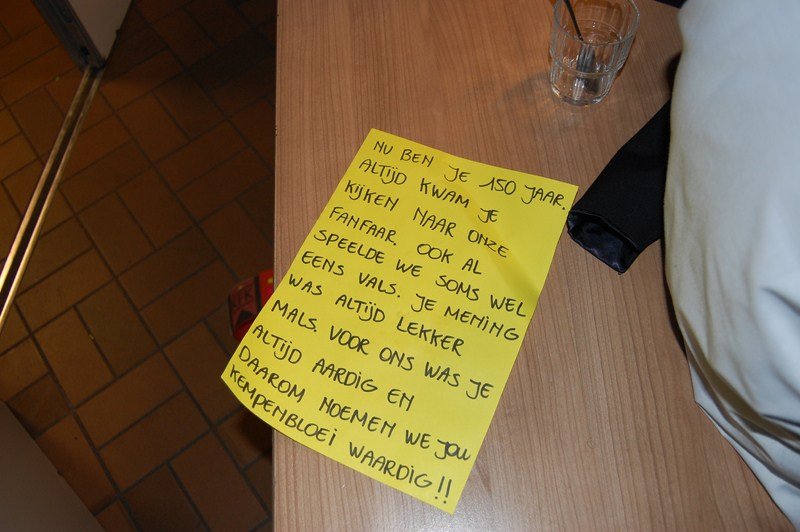 NU BEN JE 150 JAAR.
ALTIJD KWAM JE
KIJKEN NAAR ONZE
FANFAAR. OOK AL
SPEELDE WE SOMS WEL
EENS VALS. JE MENING
WAS ALTIJD LEKKER
MALS. VOOR ONS WAS JE
ALTIJD AARDIG EN
DAAROM NOEMEN WE JOU
KEMPENBLOEI WAARDIG!!